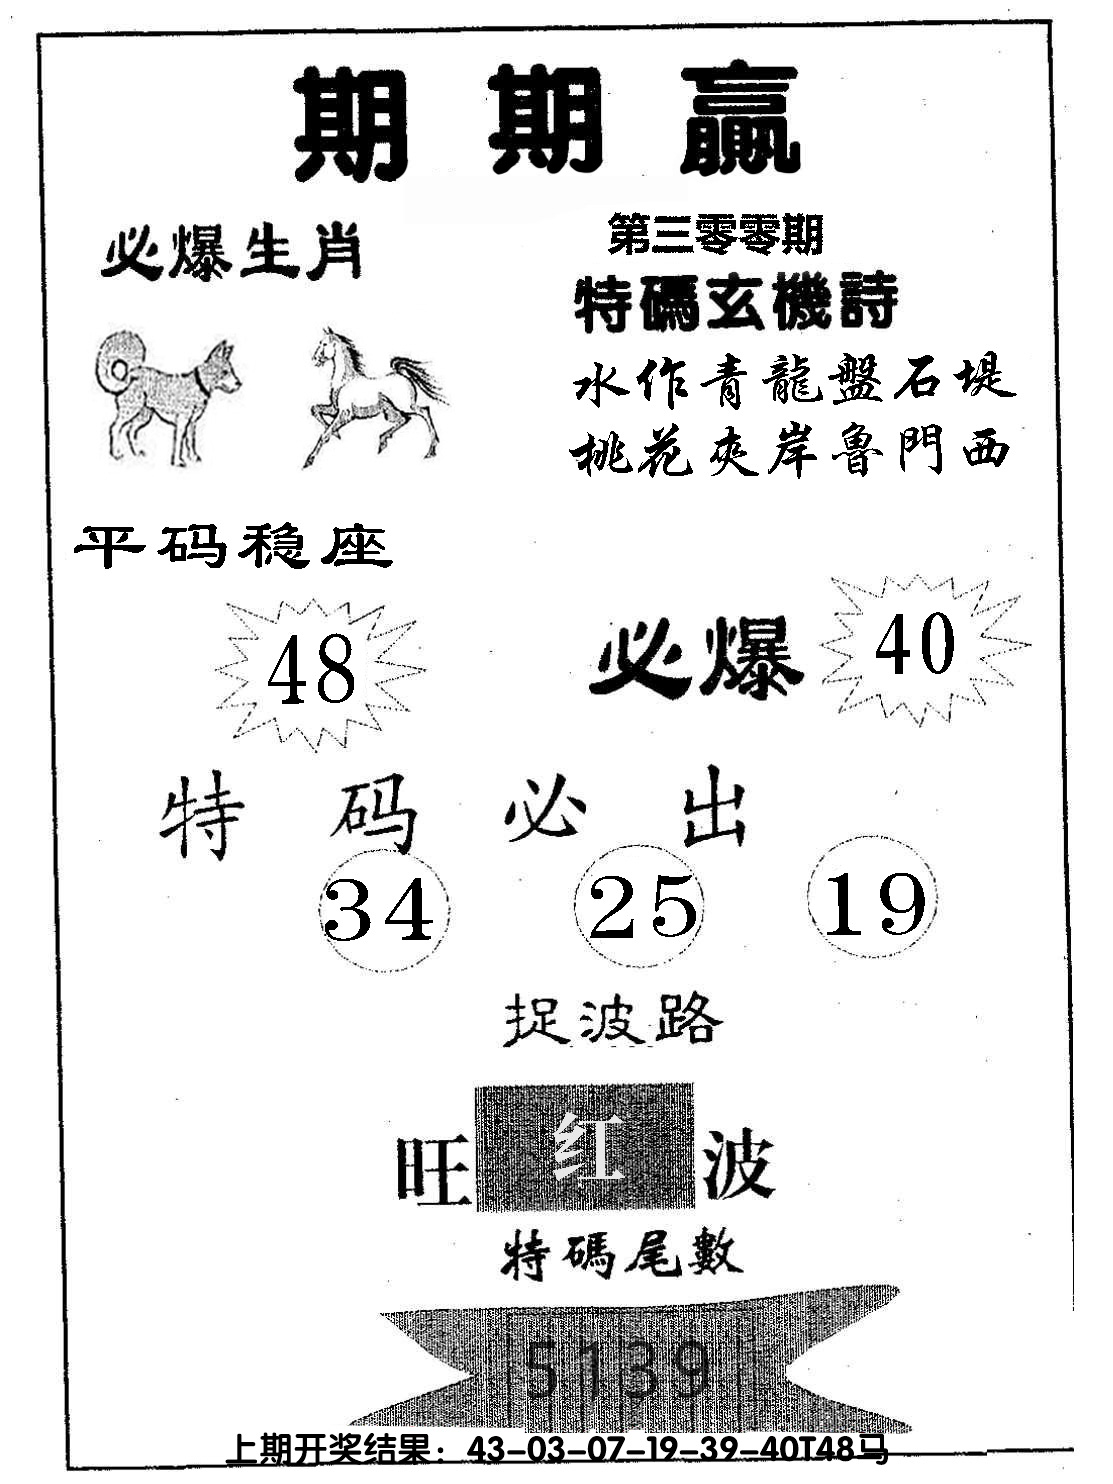 期期赢
必爆生肖
第三零零期
特碼玄機詩
水作青龍盤石堤
桃花夾岸魯門西
平码稳座
48
必爆 40
特码必出
34 25 19
捉波路
旺 红 波
特碼尾數
5139
上期开奖结果：43-03-07-19-39-40T48马